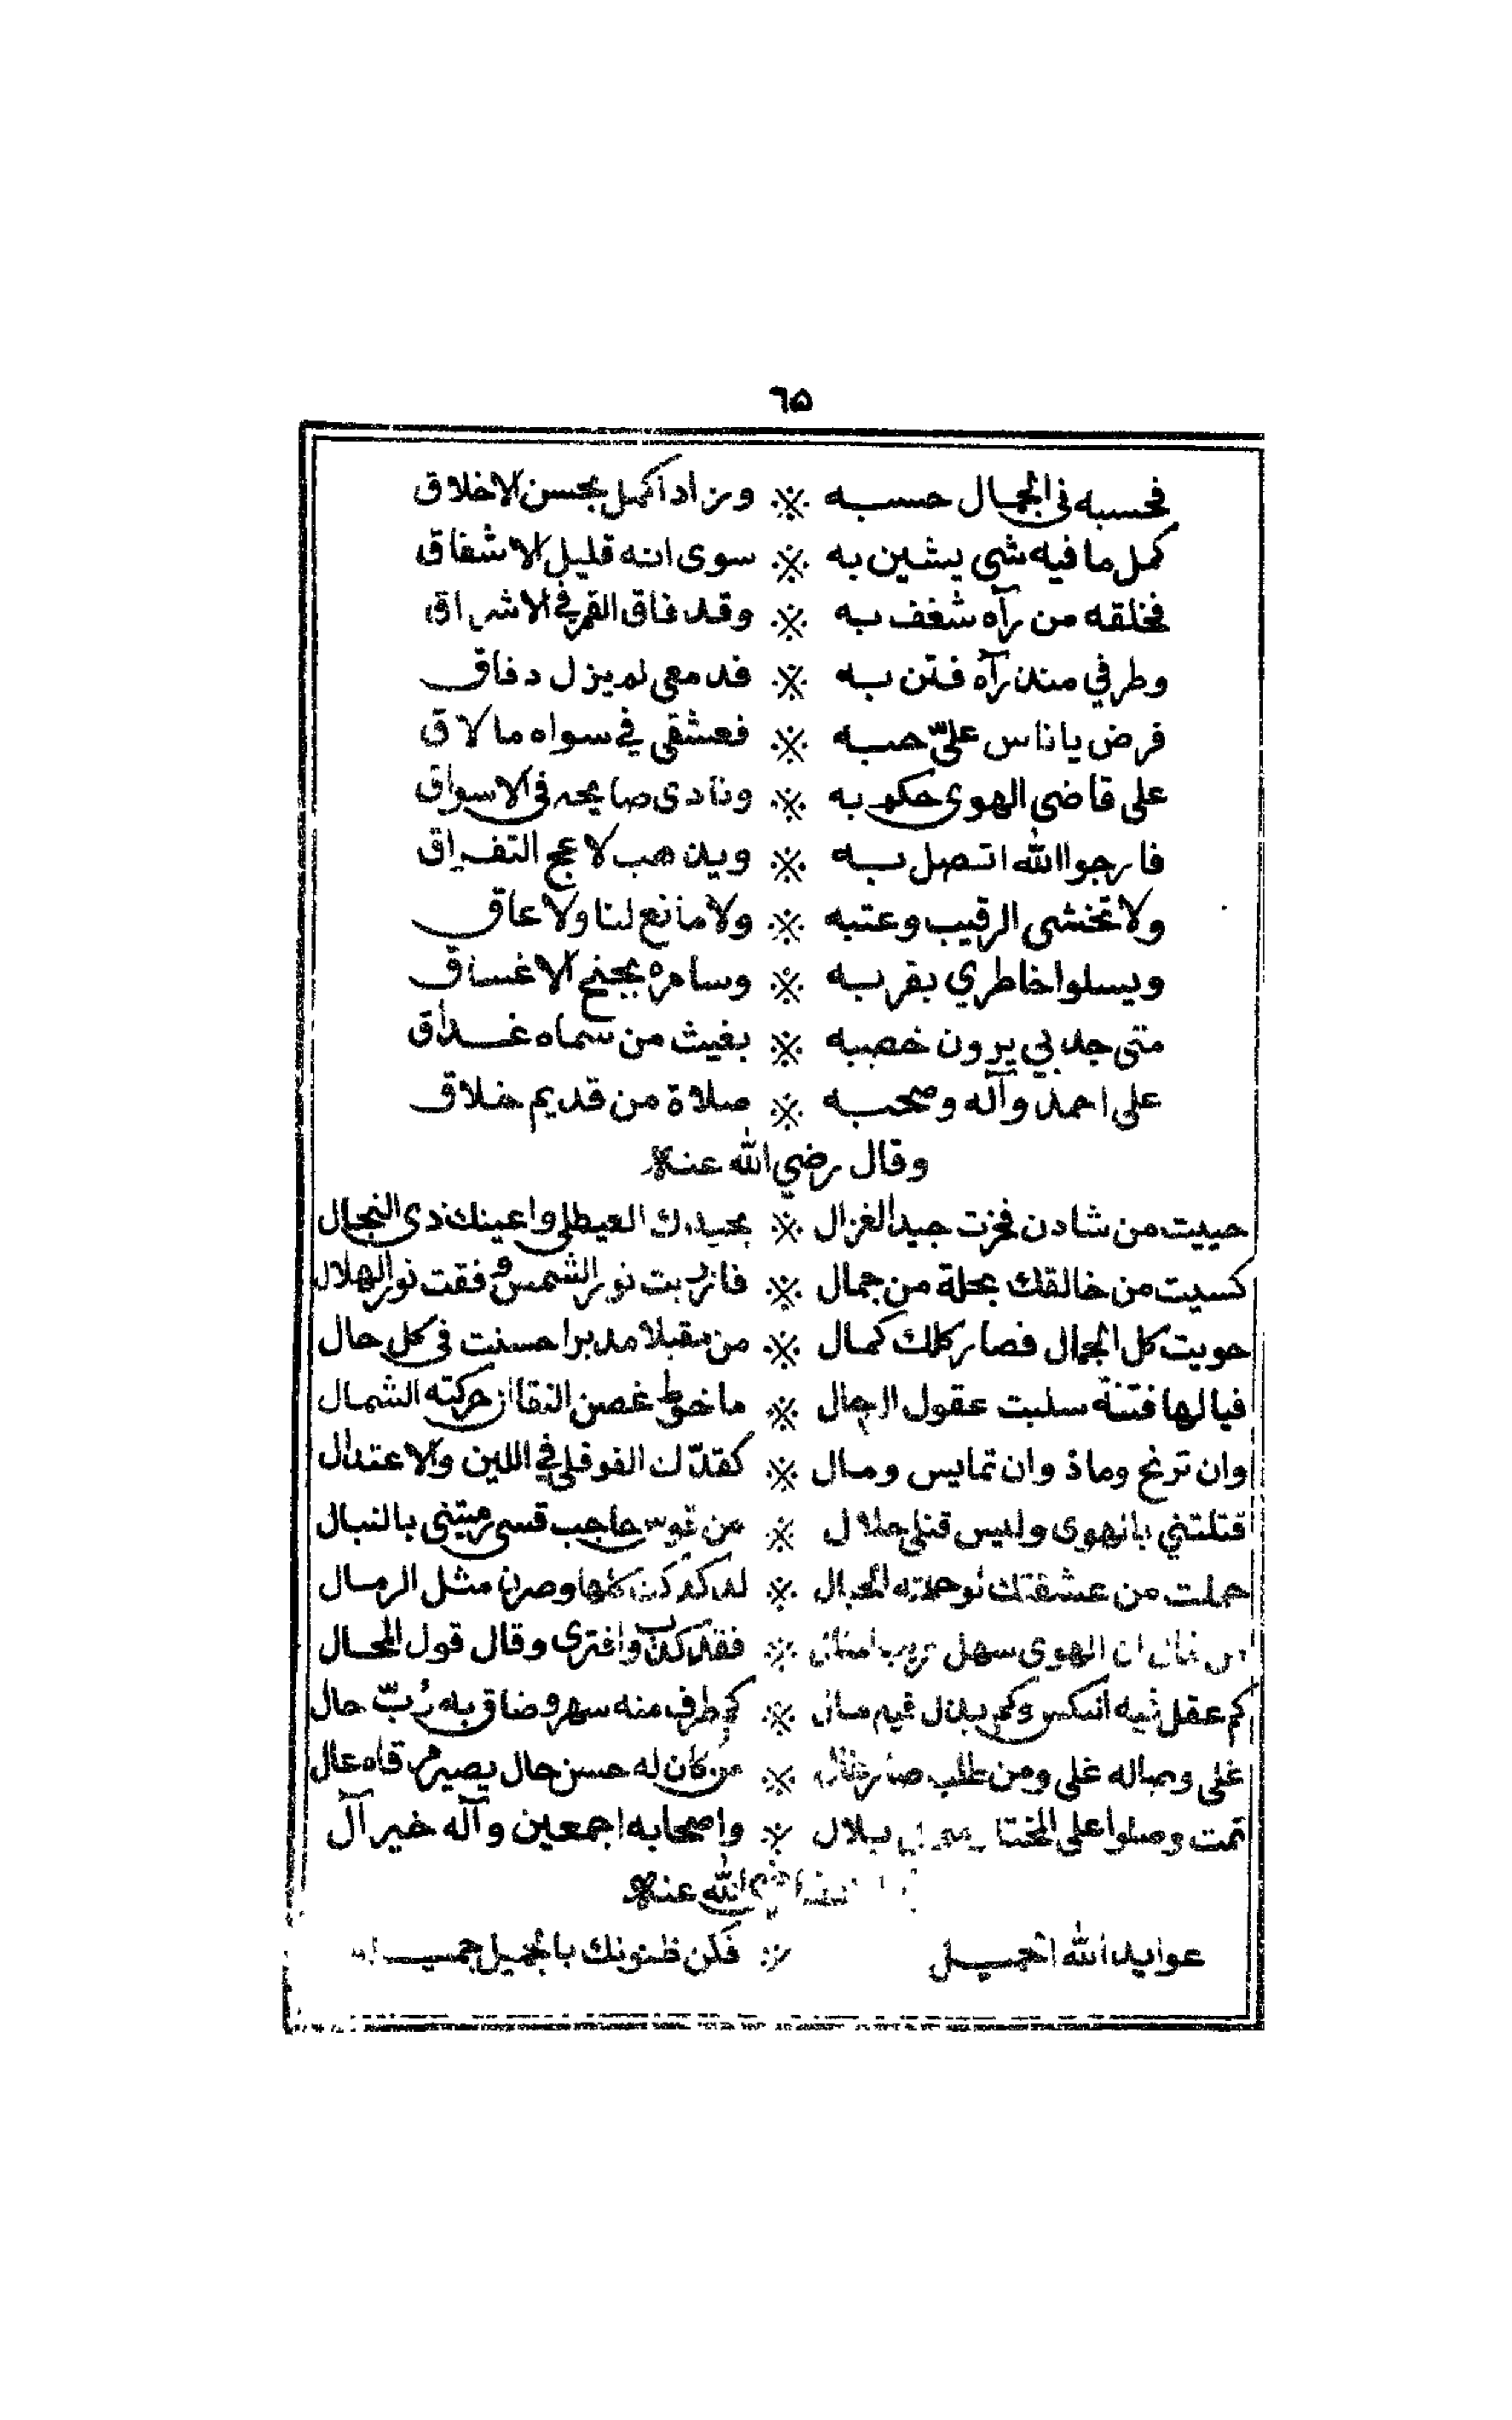 ٦٥
فحسبه في الجمال حسبه ※ وزاد اكمل بحسن الاخلاق
كمل ما فيه شي يشين به ※ سوى انه قليل الاشفاق
فخلقه من رآه شغف به ※ وقد فاق القمر في الاشراق
وطرفي منذ رآه فتن به ※ فدمعي لم يزل دفاق
فرض يا ناس عليّ حبه ※ فعشقي في سواه ما لاق
على قاضي الهوى حكم به ※ ونادى صايحه في الاسواق
فارجوا الله اتصل به ※ ويذهب لاعج التفراق
ولا تخشى الرقيب وعتبه ※ ولا مانع لنا ولا عاق
ويسلوا خاطري بقربه ※ وسامره بجنح الاغساق
متى جدبي يرون خصبه ※ بغيث من سماه غداق
على احمد وآله وصحبه ※ صلاة من قديم خلاق
وقال رضي الله عنه
حييت من شادن فحزت جيد الغزال ※ بجيدك العيطلي واعينك ذى النجال
كسيت من خالقك بحلة من جمال ※ فازريت نور الشمس وفقت نور الهلال
حويت كل الجمال فصار كلك كمال ※ من مقبلا مدبرا حسنت في كل حال
فيا لها فتنة سلبت عقول الرجال ※ ما خوط غصن النقا ان حركته الشمال
وان ترنح وماذ وان تمايس ومال ※ كقدّك الفوفلي في اللين والاعتدال
قتلتني بالهوى وليس قتلي حلال ※ من قوس حاجب قسي رميتني بالنبال
حملت من عشقتك لو حملته الجبال ※ لدكدكن كلها وصرن مثل الرمال
ان الهوى سهل ※ فقد كذب وافترى وقال قول المحال
كم عقل فيه انعكس وكم بذل فيه مال ※ كم طرف منه سهر وضاق به رُبّ حال
غلي وصاله غلي ومن طلب صار ※ من كان له حسن حال يصير مرقاه عال
تمت وصلوا على المختار بلال ※ واصحابه اجمعين وآله خير آل
الله عنه
عوايد الله الجميل ※ فكن ظنونك بالجميل